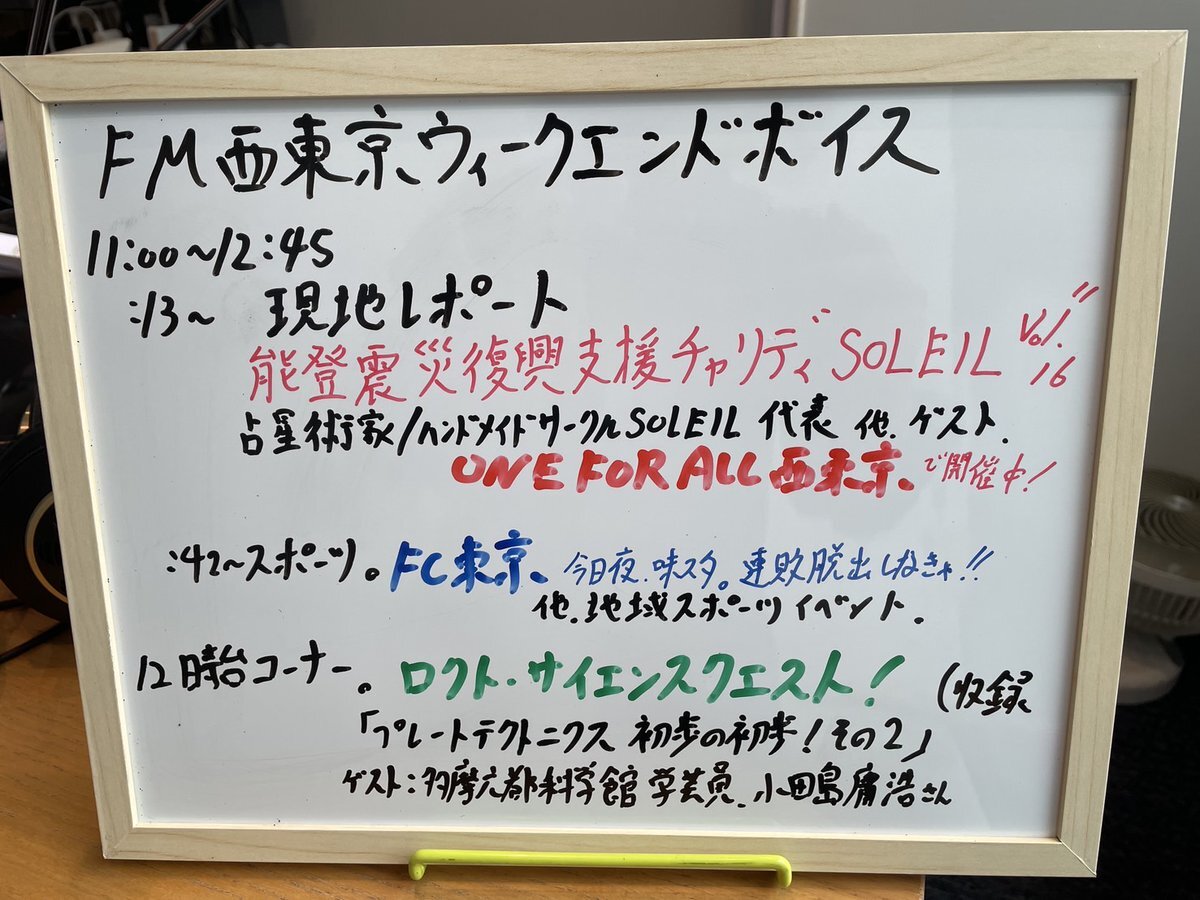 FM西東京ウィークエンドボイス
11:00~12:45
:13~ 現地レポート
能登震災復興支援チャリティ SOLEIL Vol.16
占星術家/ハンドメイドサークルSOLEIL 代表 他.ゲスト.
ONE FOR ALL 西東京.で開催中!
:42~スポーツ。FC東京、今日夜.味スタ。連敗脱出しなきゃ!!
他.地域スポーツイベント.
12時台コーナー。ロクト・サイエンスクエスト! (収録
「プレートテクトニクス 初歩の初歩!その2」
ゲスト:多摩六都科学館 学芸員.小田島庸浩さん